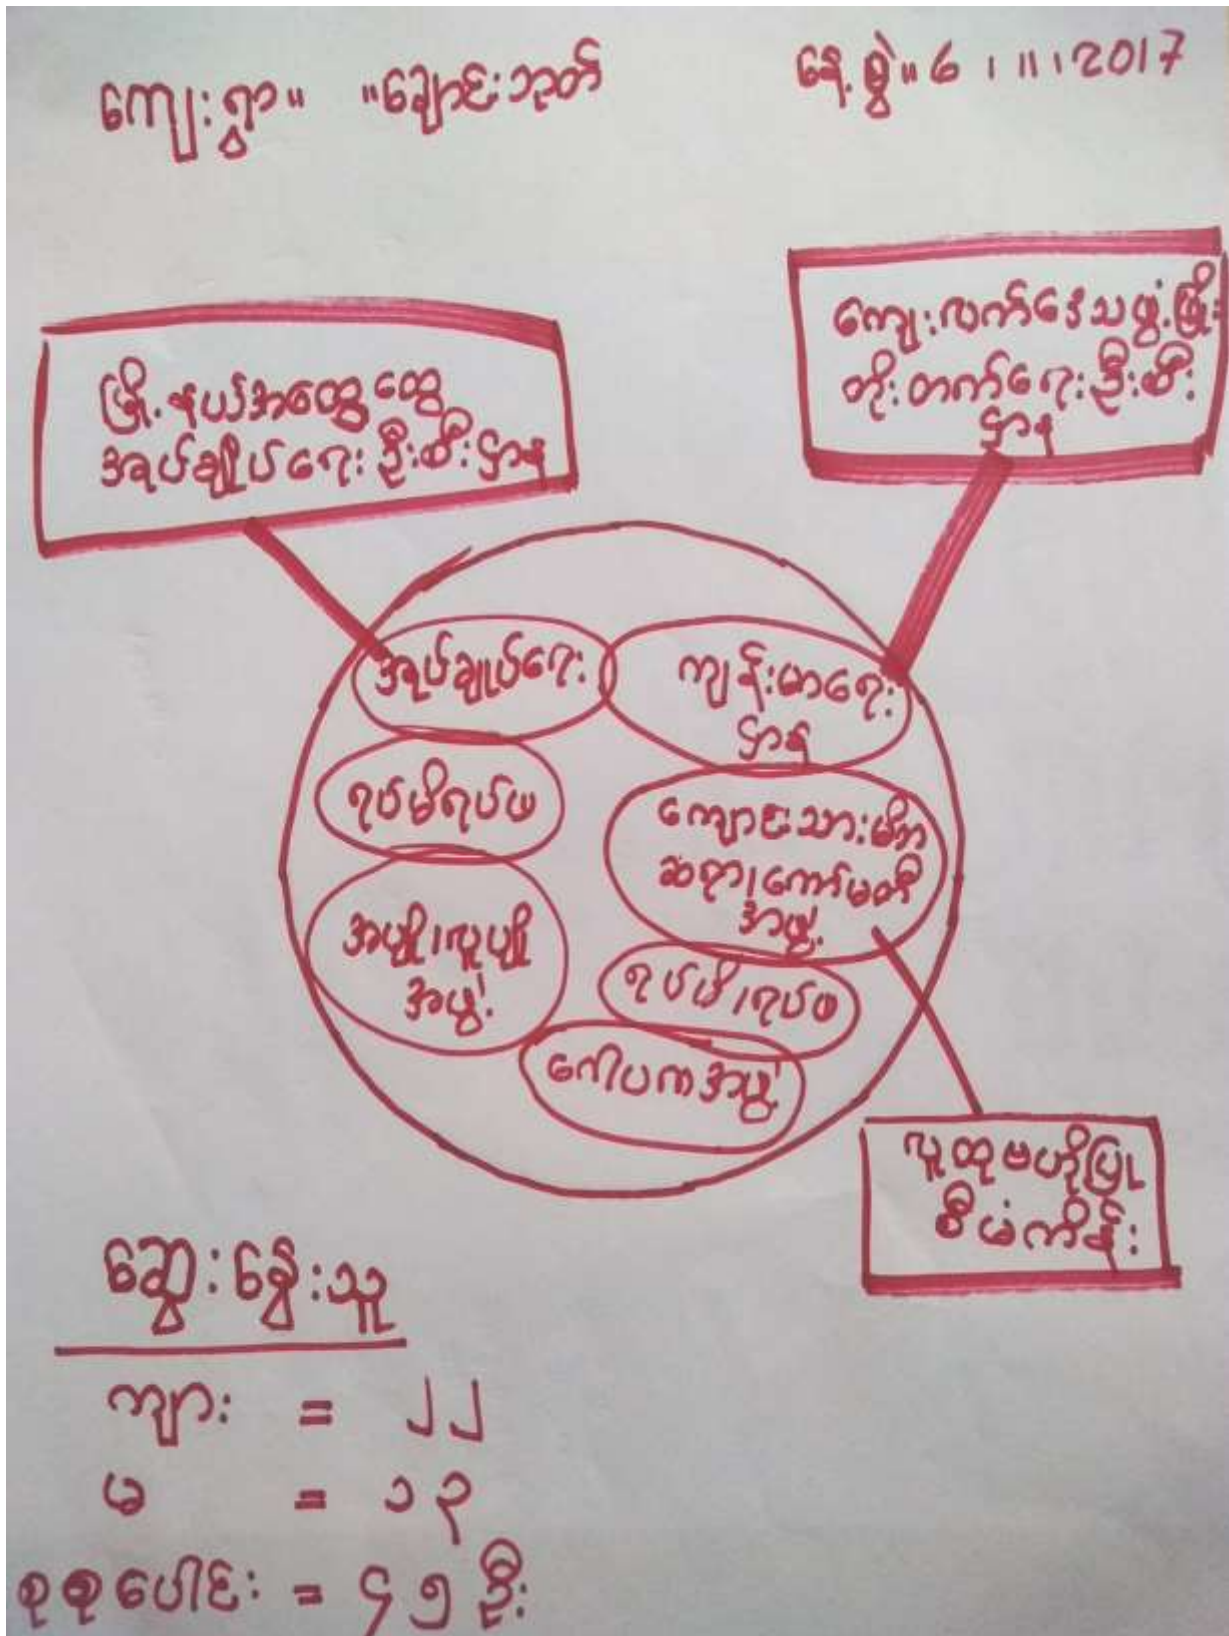 ကျေးရွာ။ "ချောင်းဘုတ်
နေ့စွဲ။ 6 ၊ 11 ၊ 2017
မြို့နယ်အထွေထွေ
အုပ်ချုပ်ရေးဦးစီးဌာန
ကျေးလက်ဒေသဖွံ့ဖြိုး
တိုးတက်ရေးဦးစီး
ဌာန
အုပ်ချုပ်ရေး
ကျန်းမာရေး
ဌာန
ရပ်မိရပ်ဖ
ကျောင်းသားမိဘ
ဆရာ၊ကော်မတီ
အဖွဲ့
အပျို၊လူပျို
အဖွဲ့
ရပ်မိ၊ရပ်ဖ
ဂေါပကအဖွဲ့
လူထုဗဟိုပြု
စီမံကိန်း
ဆွေးနွေးသူ
ကျား = ၂၂
မ = ၁၃
စုစုပေါင်း = ၄၅ ဦး